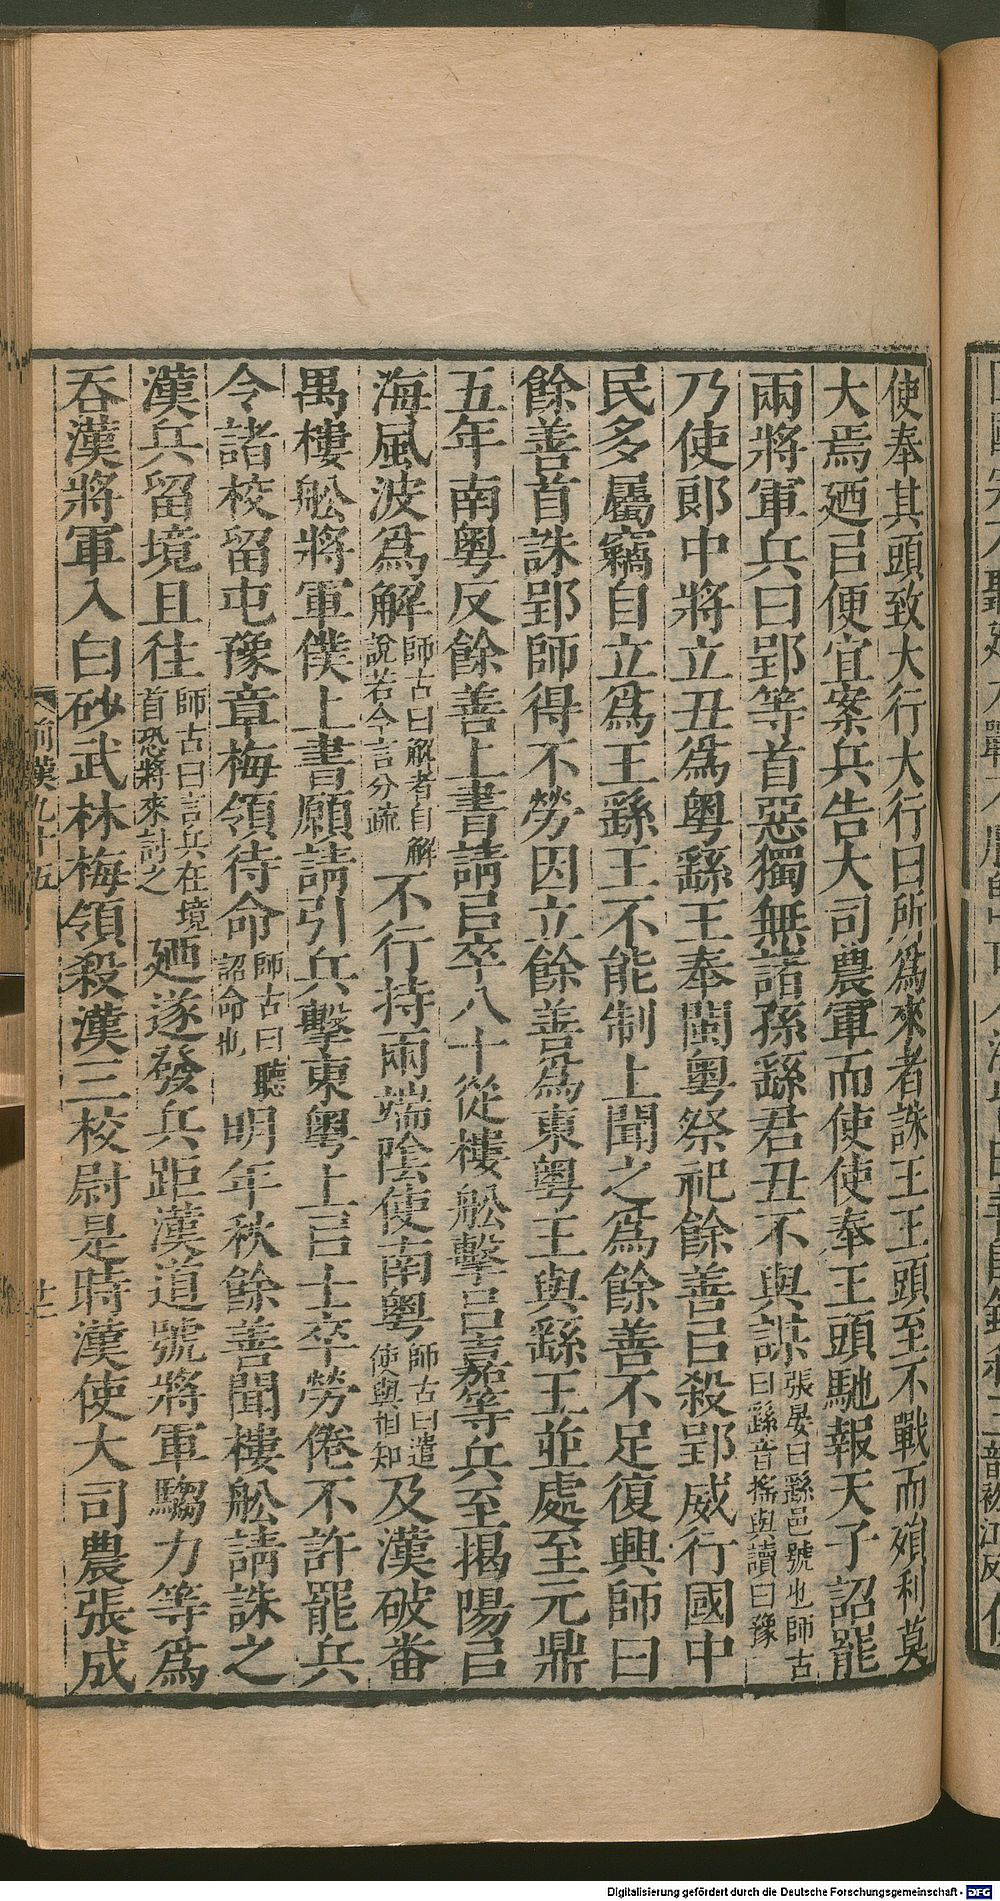 使奉其頭致大行大行曰所爲來者誅王王頭至不戰而殞利莫
大焉廼㠯便宜案兵告大司農軍而使使奉王頭馳報天子詔罷
兩將軍兵曰郢等首惡獨無諸孫繇君丑不與謀張晏曰繇邑號也師古曰繇音搖與讀曰豫
乃使郞中將立丑爲粵繇王奉閩粵祭祀餘善㠯殺郢威行國中
民多屬竊自立爲王繇王不能制上聞之爲餘善不足復興師曰
餘善首誅郢師得不勞因立餘善爲東粵王與繇王並處至元鼎
五年南粵反餘善上書請㠯卒八十從樓舩擊呂嘉等兵至揭陽㠯
海風波爲解師古曰解者自解說若今言分疏不行持兩端陰使南粵師古曰遣使與相知及漢破番
禺樓舩將軍僕上書願請引兵擊東粵上㠯士卒勞倦不許罷兵
令諸校留屯豫章梅領待命師古曰聽詔命也明年秋餘善聞樓舩請誅之
漢兵留境且往師古曰言兵在境首恐將來討之廼遂發兵距漢道號將軍騶力等爲
吞漢將軍入白砂武林梅領殺漢三校尉是時漢使大司農張成
前漢九十五
廿二
Digitalisierung gefördert durch die Deutsche Forschungsgemeinschaft - DFG